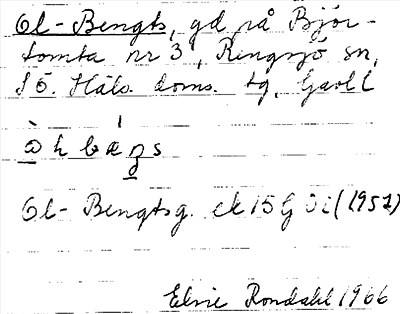 Ol-Bengts, gd på Björ-
tomta nr 3, Ringsjö sn,
S ö. Häls. doms. tg, Gävl l
Ol-Bengtsg. ek 15 G öi (1951)
Elsie Rondahl 1966